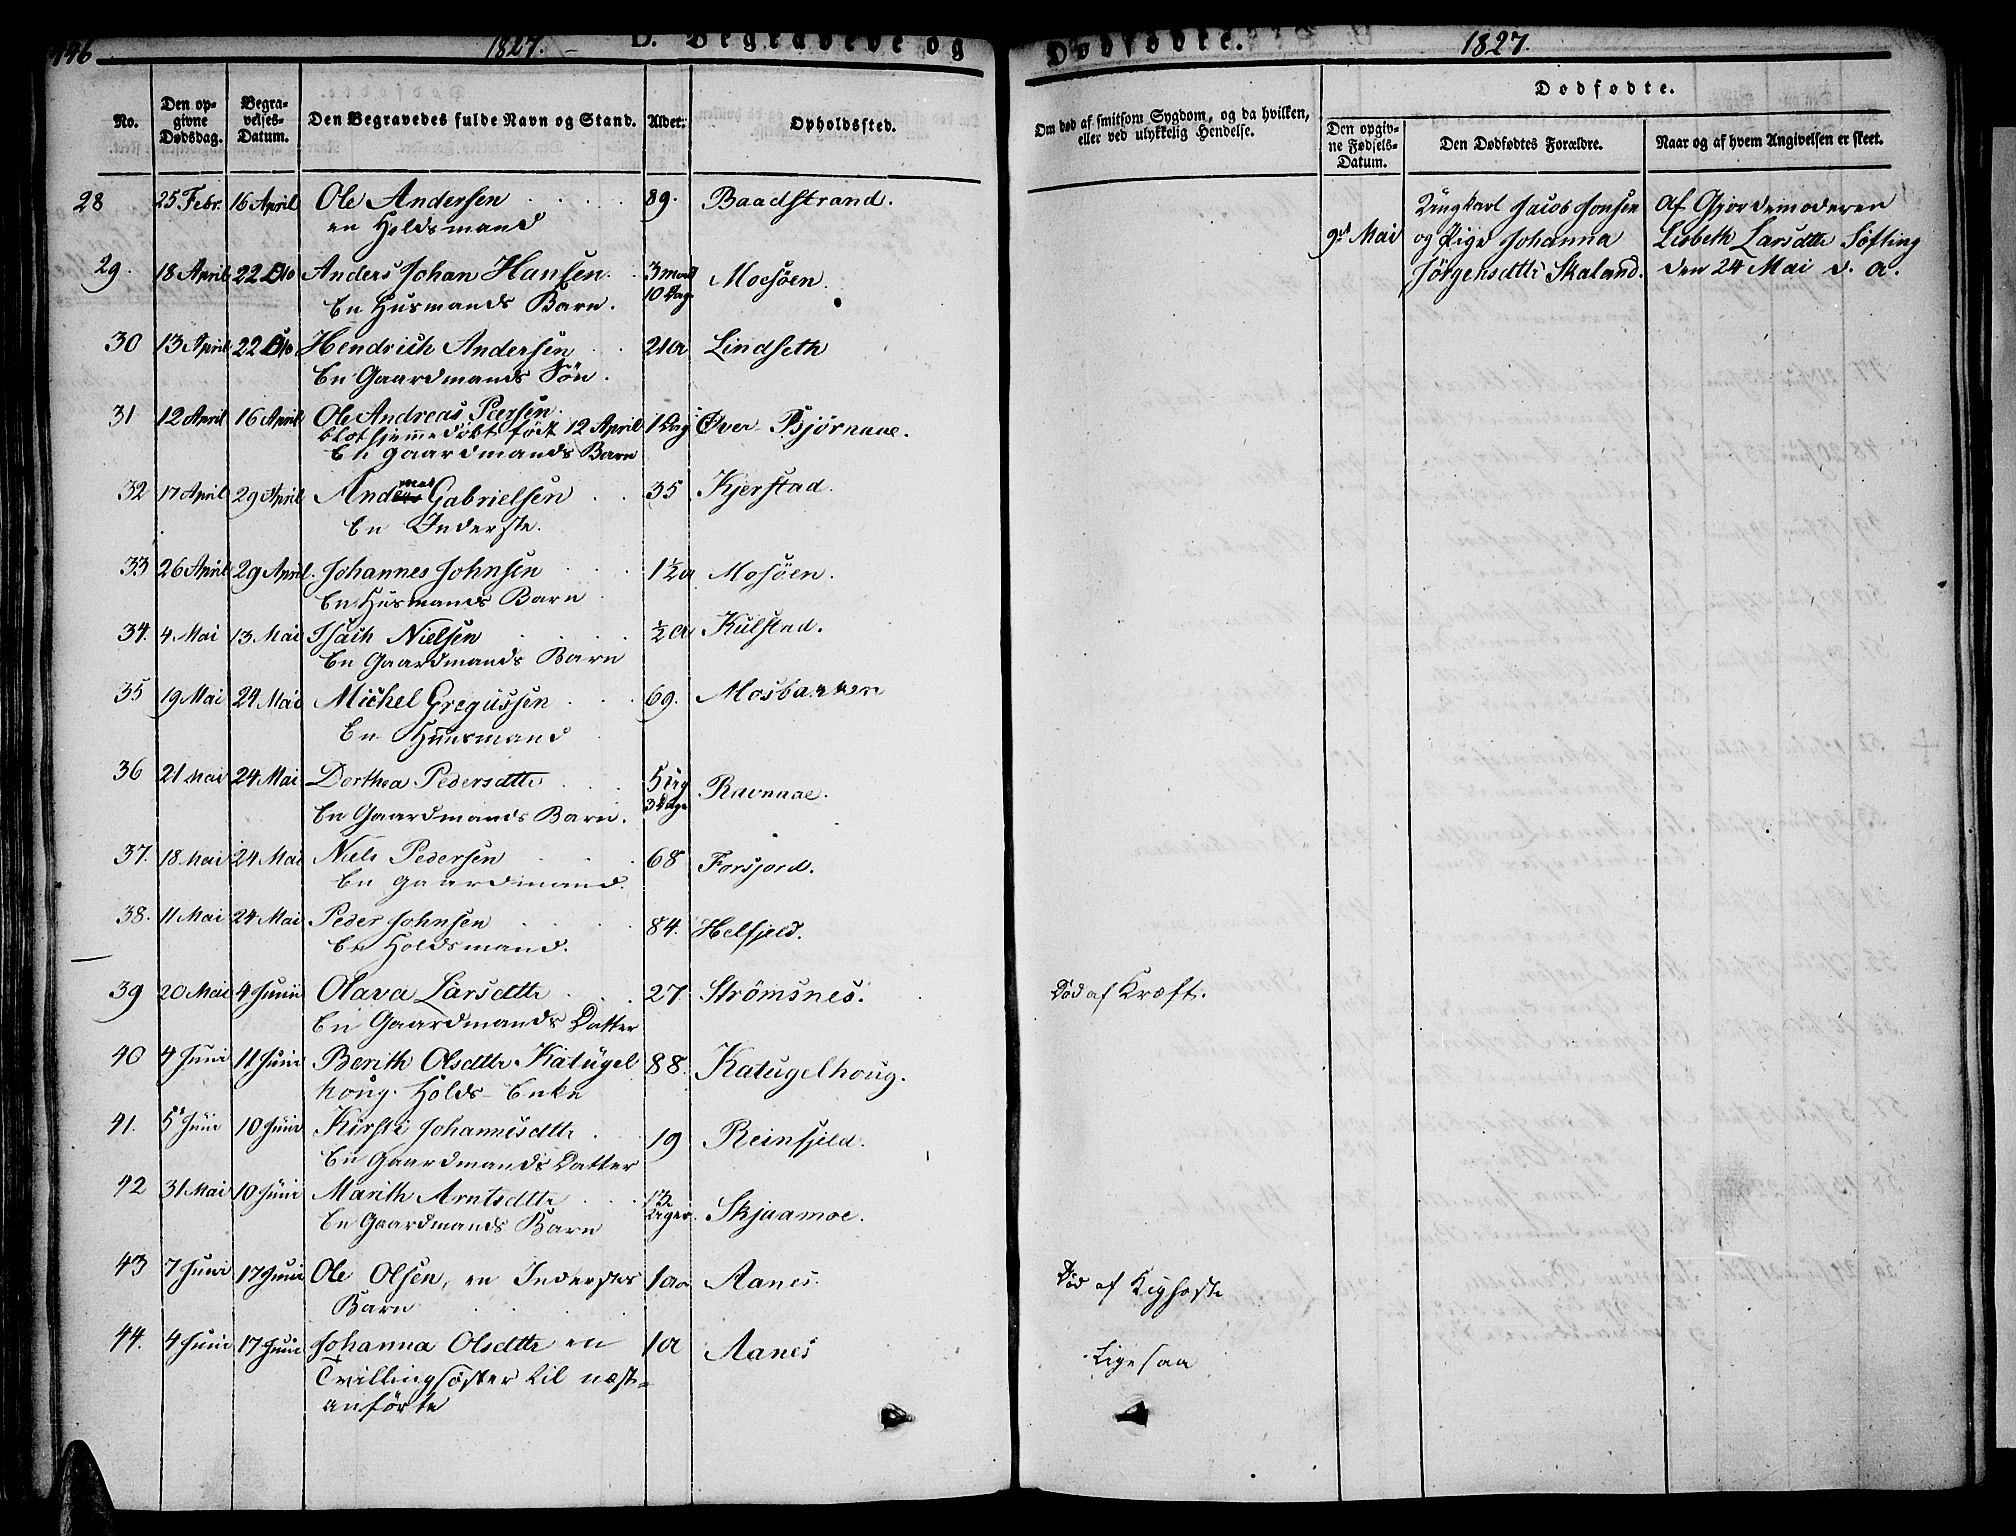 446
1827.
D. Begravede og
Dødfødte.
1827.
No.
Den opgivne Dødsdag.
Begravelses-Datum.
Den Begravedes fulde Navn og Stand.
Alder.
Opholdssted.
Om død af smitsom Sygdom, og da hvilken, eller ved ulykkelig Hendelse.
Dødfødte.
Den opgivne Fødsels-Datum.
Den Dødfødtes Forældre.
Naar og af hvem Angivelsen er skeet.
28 25 Febr. 16 April Ole Andersen 89. Baadstrand.
en Holdsmand
29. 18 April 22 Dto Anders Johan Hansen. 3 mdr 10 Dage Mosøen.
En Husmands Barn.
30 13 April 22 Dto Hendrich Andersen 21 a Lindseth
En Gaardmands Søn.
31 12 April 16 April Ole Andreas Peersen. 1 Dag Øver Bjørnaae.
blot hjemmedøbt født 12 April
En Gaardmands Barn
32 17 April 29 April Andreas Gabrielsen 35 Kjerstad.
En Inderste.
33 26 April 29 April. Johannes Johnsen 1½ a Mosøen.
En Husmands Barn
34. 4. Mai 13. Mai Isach Nielsen ½ a Kulstad.
En Gaardmands Barn
35 19 Mai 24 Mai Michel Gregussen 69. Mosbakken
En Huusmand
36 21 Mai 24 Mai Dorthea Pedersdttr 5 Ug 3 Dage Ravnaae.
En Gaardmands Barn.
37. 18 Mai 24 Mai Niels Pedersen 68 Forsjord.
En Gaardmand.
38. 11 Mai 24 Mai Peder Johnsen 84. Helfjeld.
En Holdsmand.
39 20 Mai 4 Junii Olava Larsdttr 27 Strömsnes. Död af Kræft.
En Gaardmands Datter
40 4 Juni 11 Juni Berith Olsdttr Katugel 88. Katugelhoug.
houg. Holds-Enke
41. 5t Juni 10 Juni Kirsti Johannesdttr 19 Reinfjeld.
En Gaardmands Datter
42 31 Mai 10 Juni Marith Arntsdttr Dager. Skjaamoe.
En Gaardmands Barn
43 7 Juni 17 Juni Ole Olsen, en Inderstes 1 aar Aanes. Död af Kighoste
Barn
44. 4 Juni 17 Juni Johanna Olsdttr en 1 a Aanes Ligesaa
Tvillingsöster til næst-
anförte
9d Mai
Ungkarl Jacob Jonsen
og Pige Johanna
Jörgensdttr Skaland.
Af Gjordemoderen
Lisbeth Larsdttr Söfting
den 24 Mai d. a.